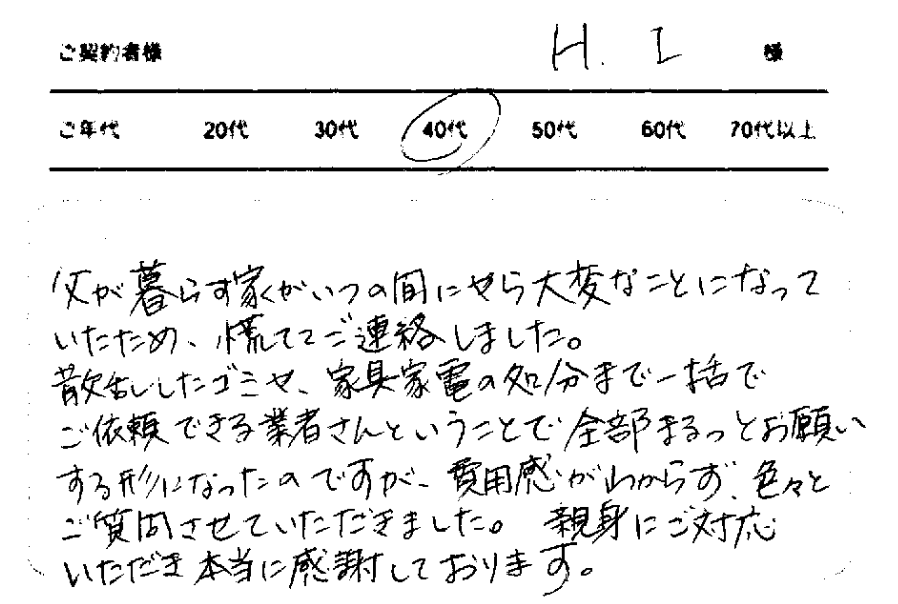 ご契約者様 H. I 様
ご年代 20代 30代 40代 50代 60代 70代以上
父が暮らす家がいつの間にやら大変なことになって
いたため、慌ててご連絡しました。
散乱したゴミや、家具家電の処分まで一括で
ご依頼できる業者さんということで全部まるっとお願い
する形になったのですが、費用感がわからず、色々と
ご質問させていただきました。 親身にご対応
いただき本当に感謝しております。